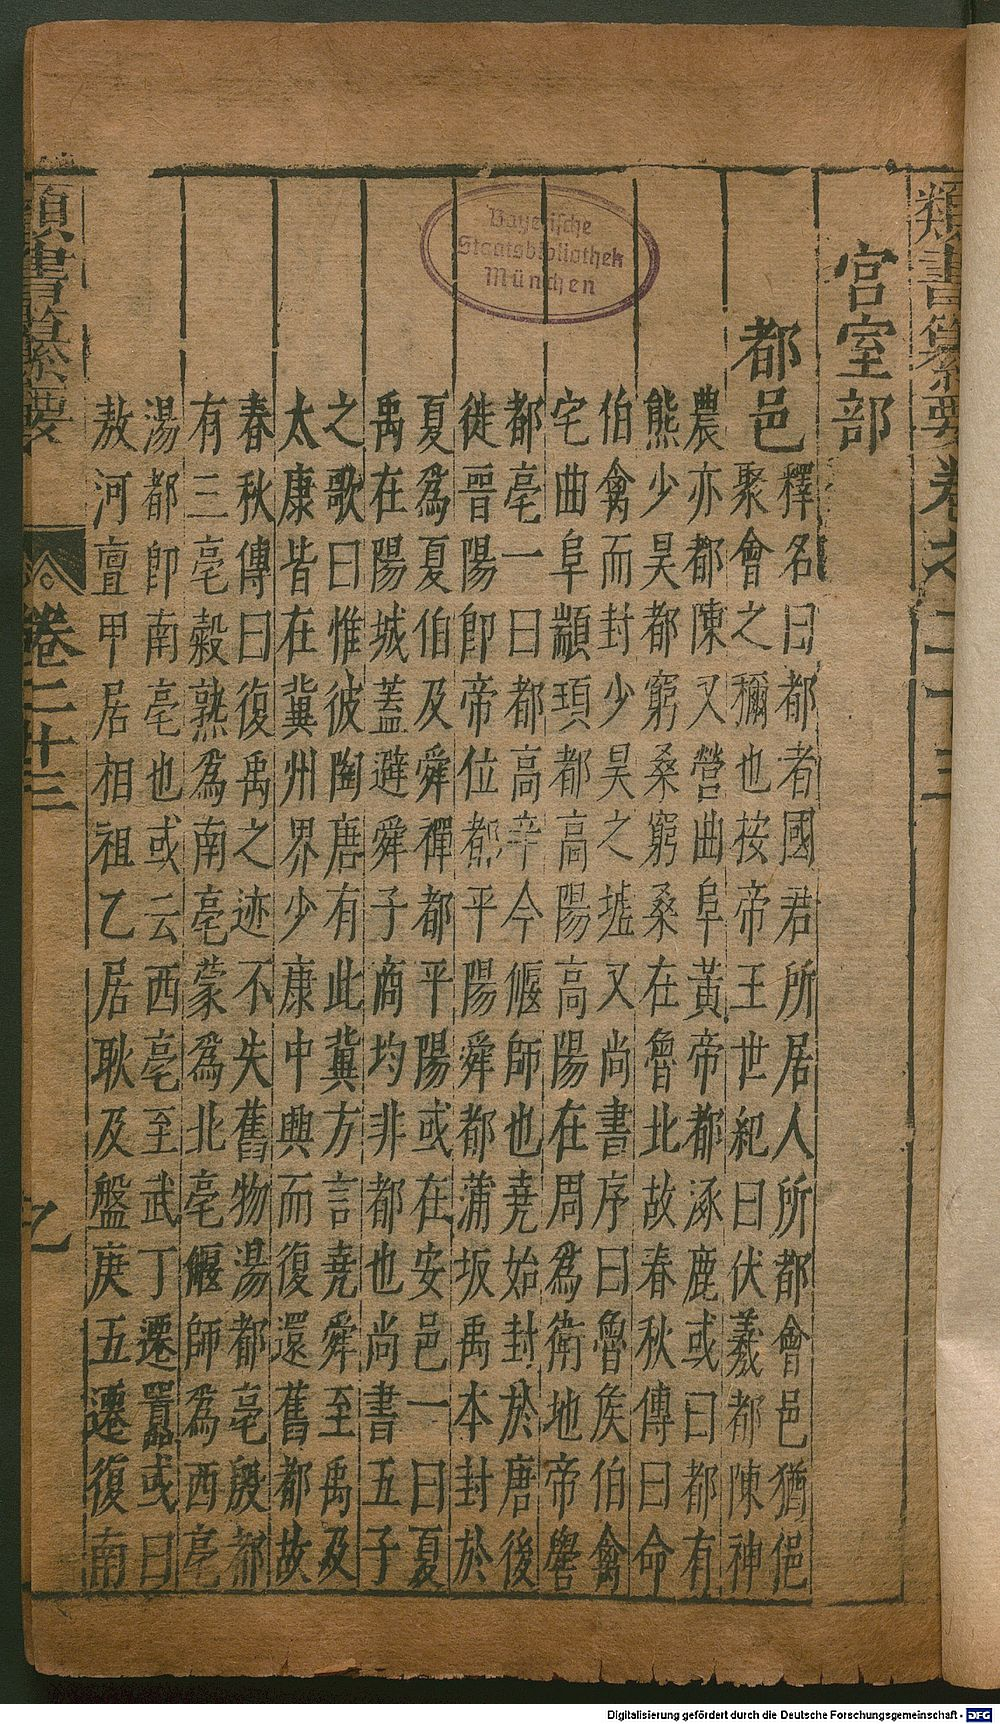 類書纂要卷之二十三
宮室部
都邑
釋名曰都者國君所居人所都會邑猶俋
聚會之稱也按帝王世紀曰伏羲都陳神
農亦都陳又營曲阜黃帝都涿鹿或曰都有
熊少昊都窮桑窮桑在魯北故春秋傳曰命
伯禽而封少昊之墟又尚書序曰魯矦伯禽
宅曲阜顓頊都高陽高陽在周爲衛地帝嚳
都亳一曰都高辛今偃師也堯始封於唐後
徙晉陽卽帝位都平陽舜都蒲坂禹本封於
夏爲夏伯及舜禪都平陽或在安邑一曰夏
禹在陽城蓋避舜子商均非都也尚書五子
之歌曰惟彼陶唐有此冀方言堯舜至禹及
太康皆在冀州界少康中興而復還舊都故
春秋傳曰復禹之迹不失舊物湯都亳殷都
有三亳穀熟爲南亳蒙爲北亳偃師爲西亳
湯都卽南亳也或云西亳至武丁遷囂或曰
敖河亶甲居相祖乙居耿及盤庚五遷復南
類書纂要
卷二十三
Bayerische
Staatsbibliothek
München
Digitalisierung gefördert durch die Deutsche Forschungsgemeinschaft - DFG